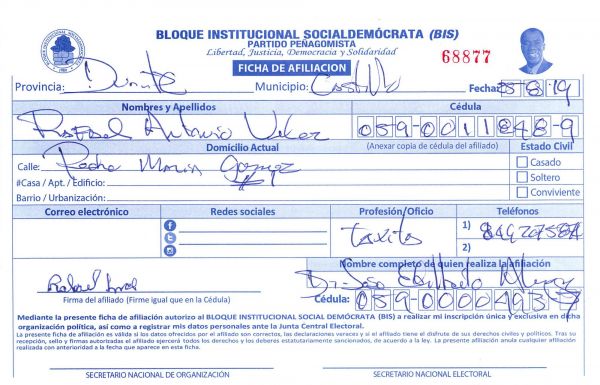 BLOQUE INSTITUCIONAL SOCIALDEMÓCRATA (BIS)
PARTIDO PEÑAGOMISTA
Libertad, Justicia, Democracia y Solidaridad
68877
FICHA DE AFILIACION
Provincia: Duarte Municipio: Castillo Fecha: 8 19
Nombres y Apellidos Cédula
Rafael Antonio 059-0011848-9
Domicilio Actual (Anexar copia de cédula del afiliado) Estado Civil
Calle: Pedro Maria Gomez Casado
#Casa / Apt. / Edificio: Soltero
Barrio / Urbanización: Conviviente
Correo electrónico Redes sociales Profesión/Oficio Teléfonos
1)
2)
Nombre completo de quien realiza la afiliación
Dr.
Firma del afiliado (Firme igual que en la Cédula) Cédula:
Mediante la presente ficha de afiliación autorizo al BLOQUE INSTITUCIONAL SOCIAL DEMÓCRATA (BIS) a realizar mi inscripción única y exclusiva en dicha
organización política, así como a registrar mis datos personales ante la Junta Central Electoral.
La presente ficha de afiliación es válida si los datos ofrecidos por el afiliado son correctos, las declaraciones veraces y si el afiliado tiene el disfrute de sus derechos civiles y políticos. Tras su
recepción, sello y firmas autorizadas el afiliado ejercerá todos los derechos y los deberes estatutariamente sancionados, de acuerdo a la ley. La presente afiliación anula cualquier afiliación
realizada con anterioridad a la fecha que aparece en esta ficha.
SECRETARIO NACIONAL DE ORGANIZACIÓN SECRETARIO NACIONAL ELECTORAL